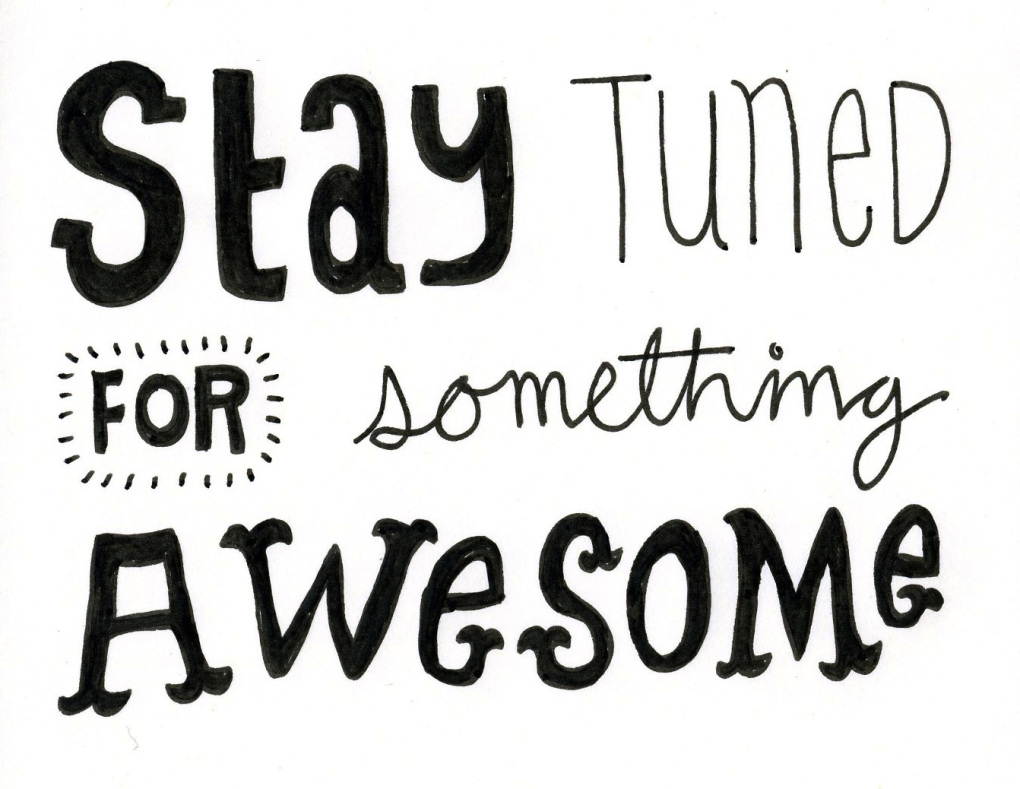 Stay Tuned
FOR something
AWeSOMe